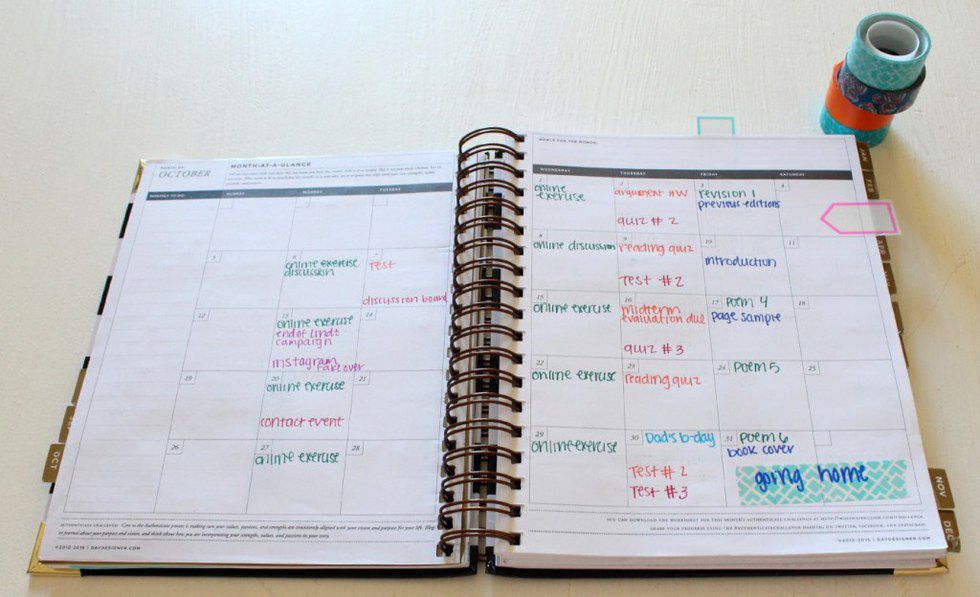 OCTOBER
MONTH-AT-A-GLANCE
MONTHLY TO DO
SUNDAY
MONDAY
TUESDAY
5
6
7
online exercise
discussion
Test
discussion board
12
13
14
online exercise
end of lindt
campaign
instagram
takeover
19
20
21
online exercise
contact event
26
27
28
online exercise
AUTHENTICATE CHALLENGE:
©2012-2015 | DAYDESIGNER.COM
OCT
GOALS FOR THE MONTH:
WEDNESDAY
THURSDAY
FRIDAY
SATURDAY
1
2
3
4
online
exercise
argument HW
quiz # 2
revision 1
previous editions
8
9
10
11
online discussion
reading quiz
Test #2
introduction
15
16
17
18
online exercise
midterm
evaluation due
quiz #3
poem 4
page sample
22
23
24
25
online exercise
reading quiz
poem 5
29
30
31
online exercise
Dad's b-day
Test # 2
Test #3
poem 6
book cover
going home
©2012-2015 | DAYDESIGNER.COM
JAN
FEB
NOV
DEC